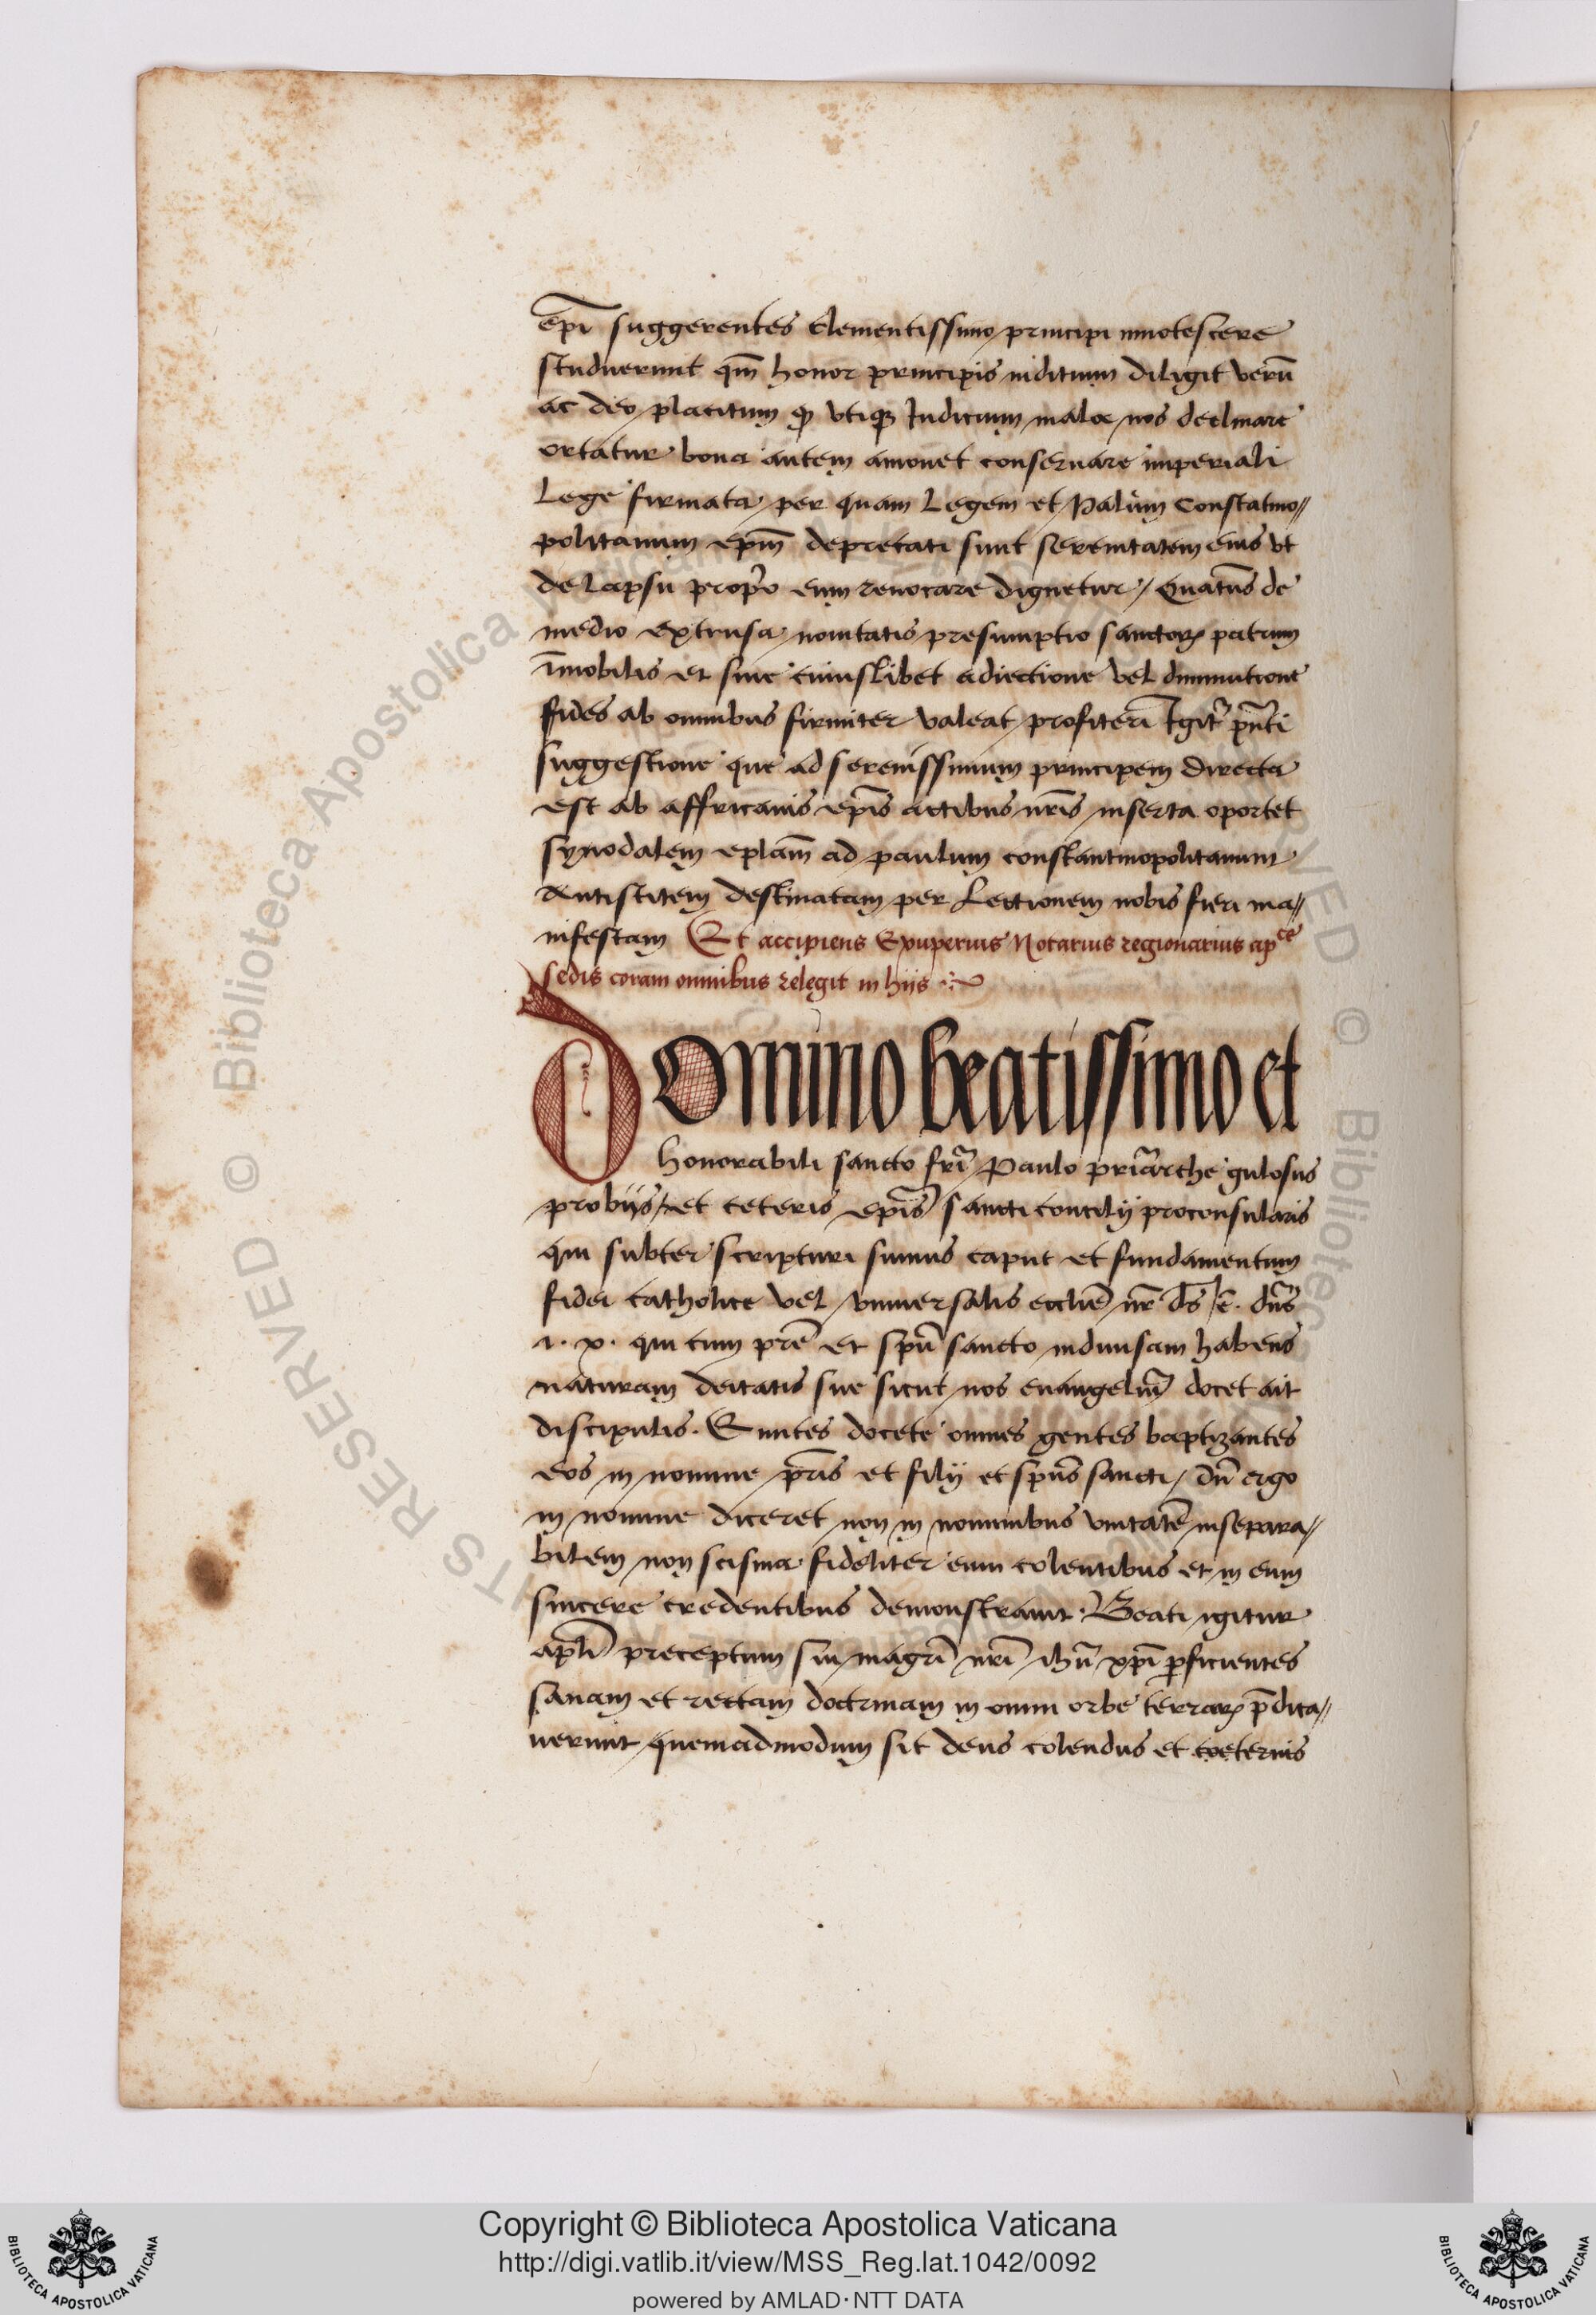 ep̄i suggerentes Clementissimo principi innotescere
studuerunt qm̄ honor principis iuditium diligit verū
ac deo placitum qd vtiqꝫ Iuditium mala nos declinare
ortatur bona autem amonet conseruare imperiali
Lege firmata per quam Legem et Palum Constatino//
politanum epm̄ deprecati sunt serenitatem eius vt
de lapsu propo eum reuocare dignetur / Quatn̄s de
medio extrusa nouitatis presumptio sanctoꝝ patrum
īmobilis et sine cuiuslibet adiectione vel diminutione
fides ab omnibus firmiter valeat profiteri Igit̄ pn̄ti
suggestione que ad serenissimum principem directa
est ab affricanis ep̄is actibus nr̄is inserta oportet
synodalem eplam̄ ad paulum constantinopolitanum
Antistitem destinatam per Lectionem nobis fieri ma//
nifestam Et accipiens Exuperius Notarius regionarius apce
sedis coram omnibus relegit in hiis
Domino beatissimo et
honorabili sancto frī Paulo priārche gulosus
probiis et ceteris ep̄is sancti concilij proconsularis
qui subter scripturi sumus caput et fundamentum
fidei catholice vel vniuersalis ecclie̅ nr̄e ds̄ ē. dn̄s
i. x. qui cum prē et spū sancto indiuisam habens
naturam deitatis sue sicut nos euangeliū docet ait
discipulis. Euntes docete omnes gentes baptizantes
eos in nomine pr̄is et filij et spūs sancti / dū ergo
in nomine diceret non in nominibus vnitatē insepara//
bilem non scisma fideliter eum colentibus et in eum
sincere credentibus demonstrauit. Beati igitur
apl̄i preceptum sui magr̄i nr̄i ihū xp̄i ꝑficientes
sanam et rectam doctrinam in omni orbe terraꝝ p̄dica//
uerunt quemadmodum sit deus colendus et coeternis
Copyright © Biblioteca Apostolica Vaticana
http://digi.vatlib.it/view/MSS_Reg.lat.1042/0092
powered by AMLAD·NTT DATA
BIBLIOTECA APOSTOLICA VATICANA
BIBLIOTECA APOSTOLICA VATICANA